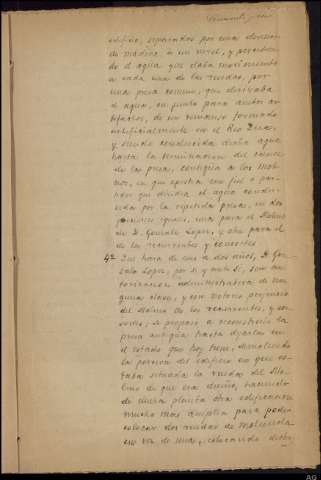 edificio, separados por una division
de madera, á un nivel, y recibien-
do el agua que daba movimiento
á cada una de las ruedas, por
una presa comun, que derivaba
el agua, en punto para ambos ar-
tefactos, de un remanso formado
artificialmente en el Rio
y siendo conducida dicha agua
hasta la terminacion del cauce
de la presa, contigua á los moli-
nos, en que existia un fiel ó par-
tidor que dividia el agua condu-
cida por la repetida presa, en dos
porciones iguales, una para el Molino
de D. Gonzalo Lopez, y otra para el
de los recurrentes y consortes
4º Que hara de uno á dos años, D. Gon-
zalo Lopez, por sí y ante sí, sin au-
torizacion administrativa de nin-
guna clase, y con notorio perjuicio
del Molino de los recurrentes, y con-
sortes, se propuso á reconstruir la
presa antigua hasta dejarla en
el estado que hoy tiene, demoliendo
la porcion del edificio en que es-
taba situada la rueda del Mo-
lino de que era dueño, haciendo
de nueva planta otra edificacion
mucho mas amplia para poder
colocar dos ruedas de molienda
en vez de una, colocando